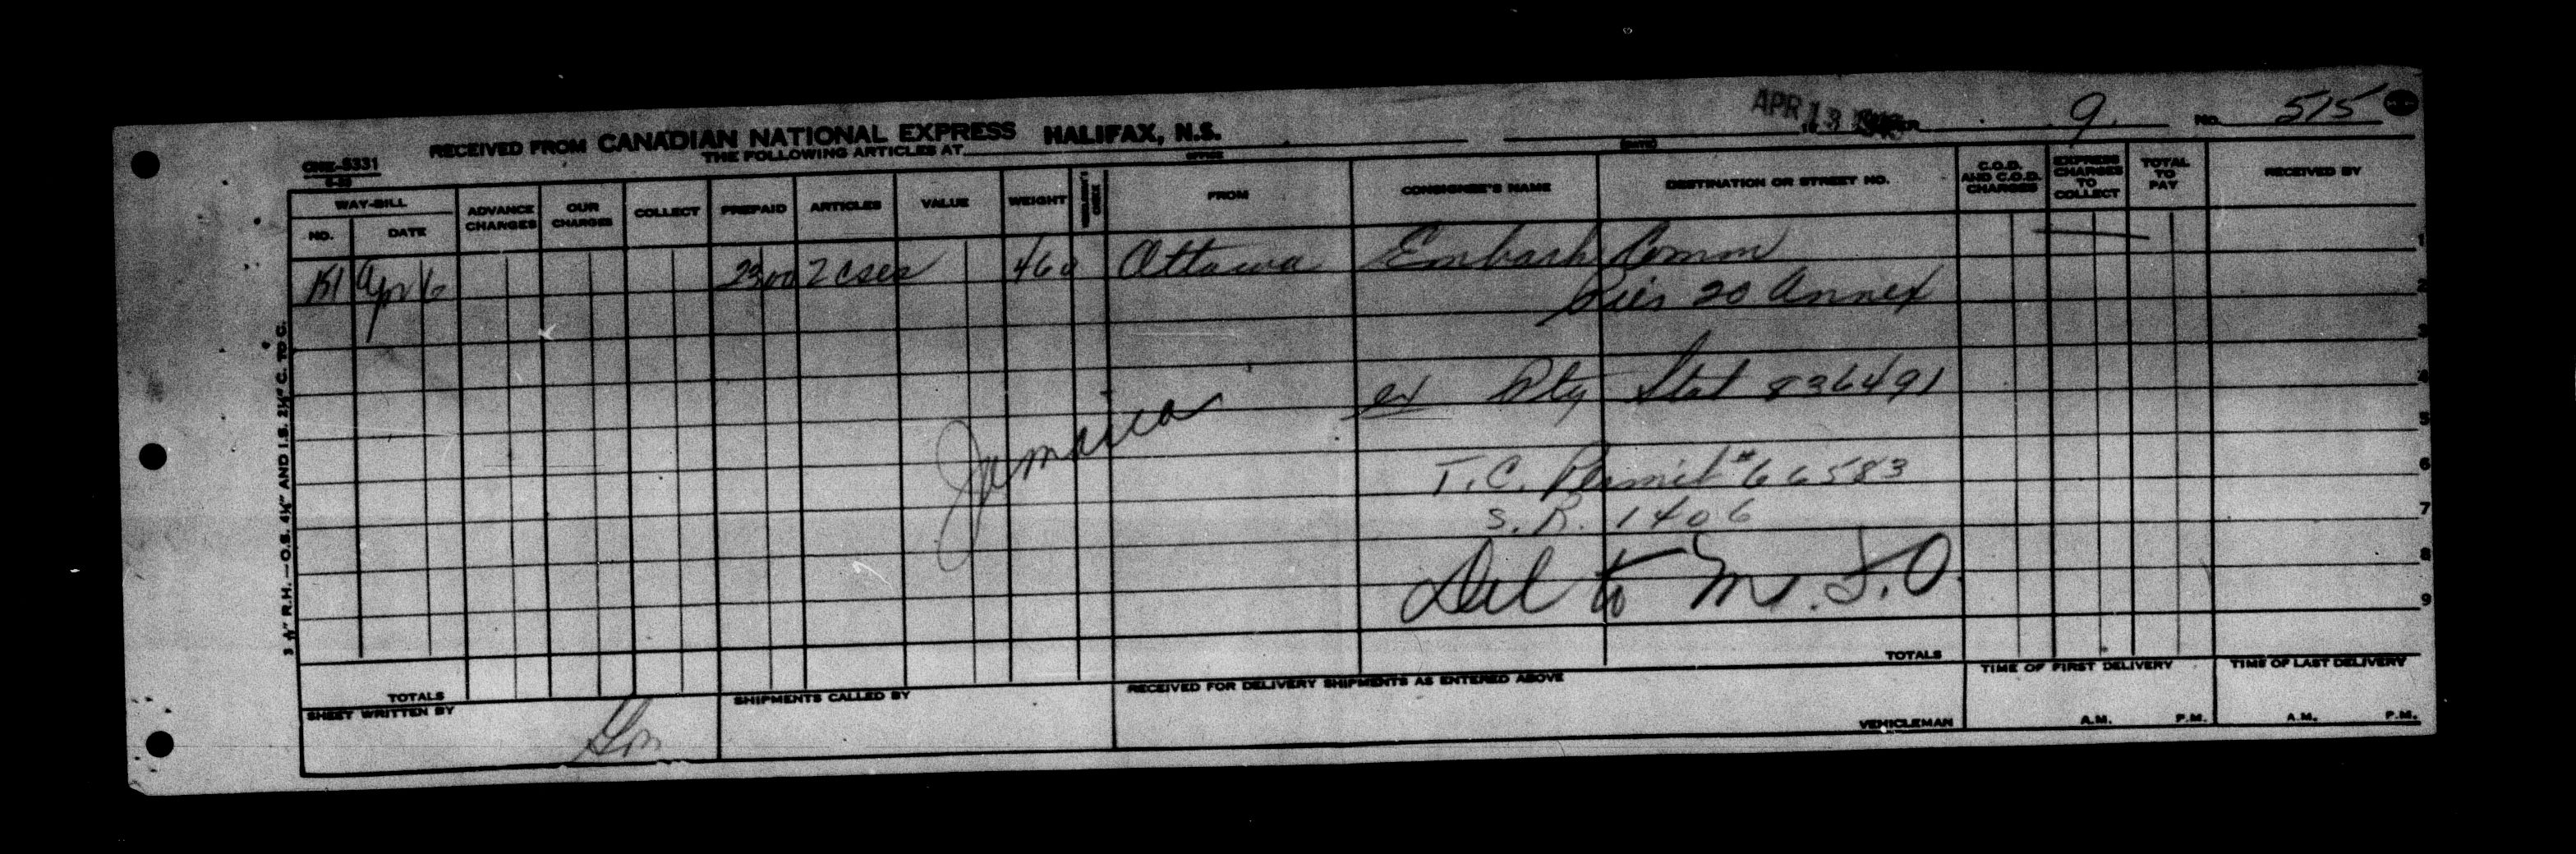 RECEIVED FROM CANADIAN NATIONAL EXPRESS HALIFAX, N.S. APR 13 9 NO. 515
CNE-5331
THE FOLLOWING ARTICLES AT OFFICE (DATE)
WAY-BILL ADVANCE CHARGES OUR CHARGES COLLECT PREPAID ARTICLES VALUE WEIGHT FROM CONSIGNEE'S NAME DESTINATION OR STREET NO. C.O.D. AND C.O.D. CHARGES EXPRESS CHARGES TO COLLECT TOTAL TO PAY RECEIVED BY
NO. DATE
K1 Apr 6 23 00 2 cses 460 Ottawa Embark Comm 1
Pier 20 Annex 2
3
ex Dty Stat 836491 4
Jamaica 5
T.C. Permit #66583 6
S.R. 1406 7
Del to M.T.O. 8
9
3 ½" R.H. — O.S. 4¼" AND I.S. 2¼" C. TO C.
TOTALS
TOTALS
SHEET WRITTEN BY SHIPMENTS CALLED BY RECEIVED FOR DELIVERY SHIPMENTS AS ENTERED ABOVE TIME OF FIRST DELIVERY TIME OF LAST DELIVERY
VEHICLEMAN A.M. P.M. A.M. P.M.